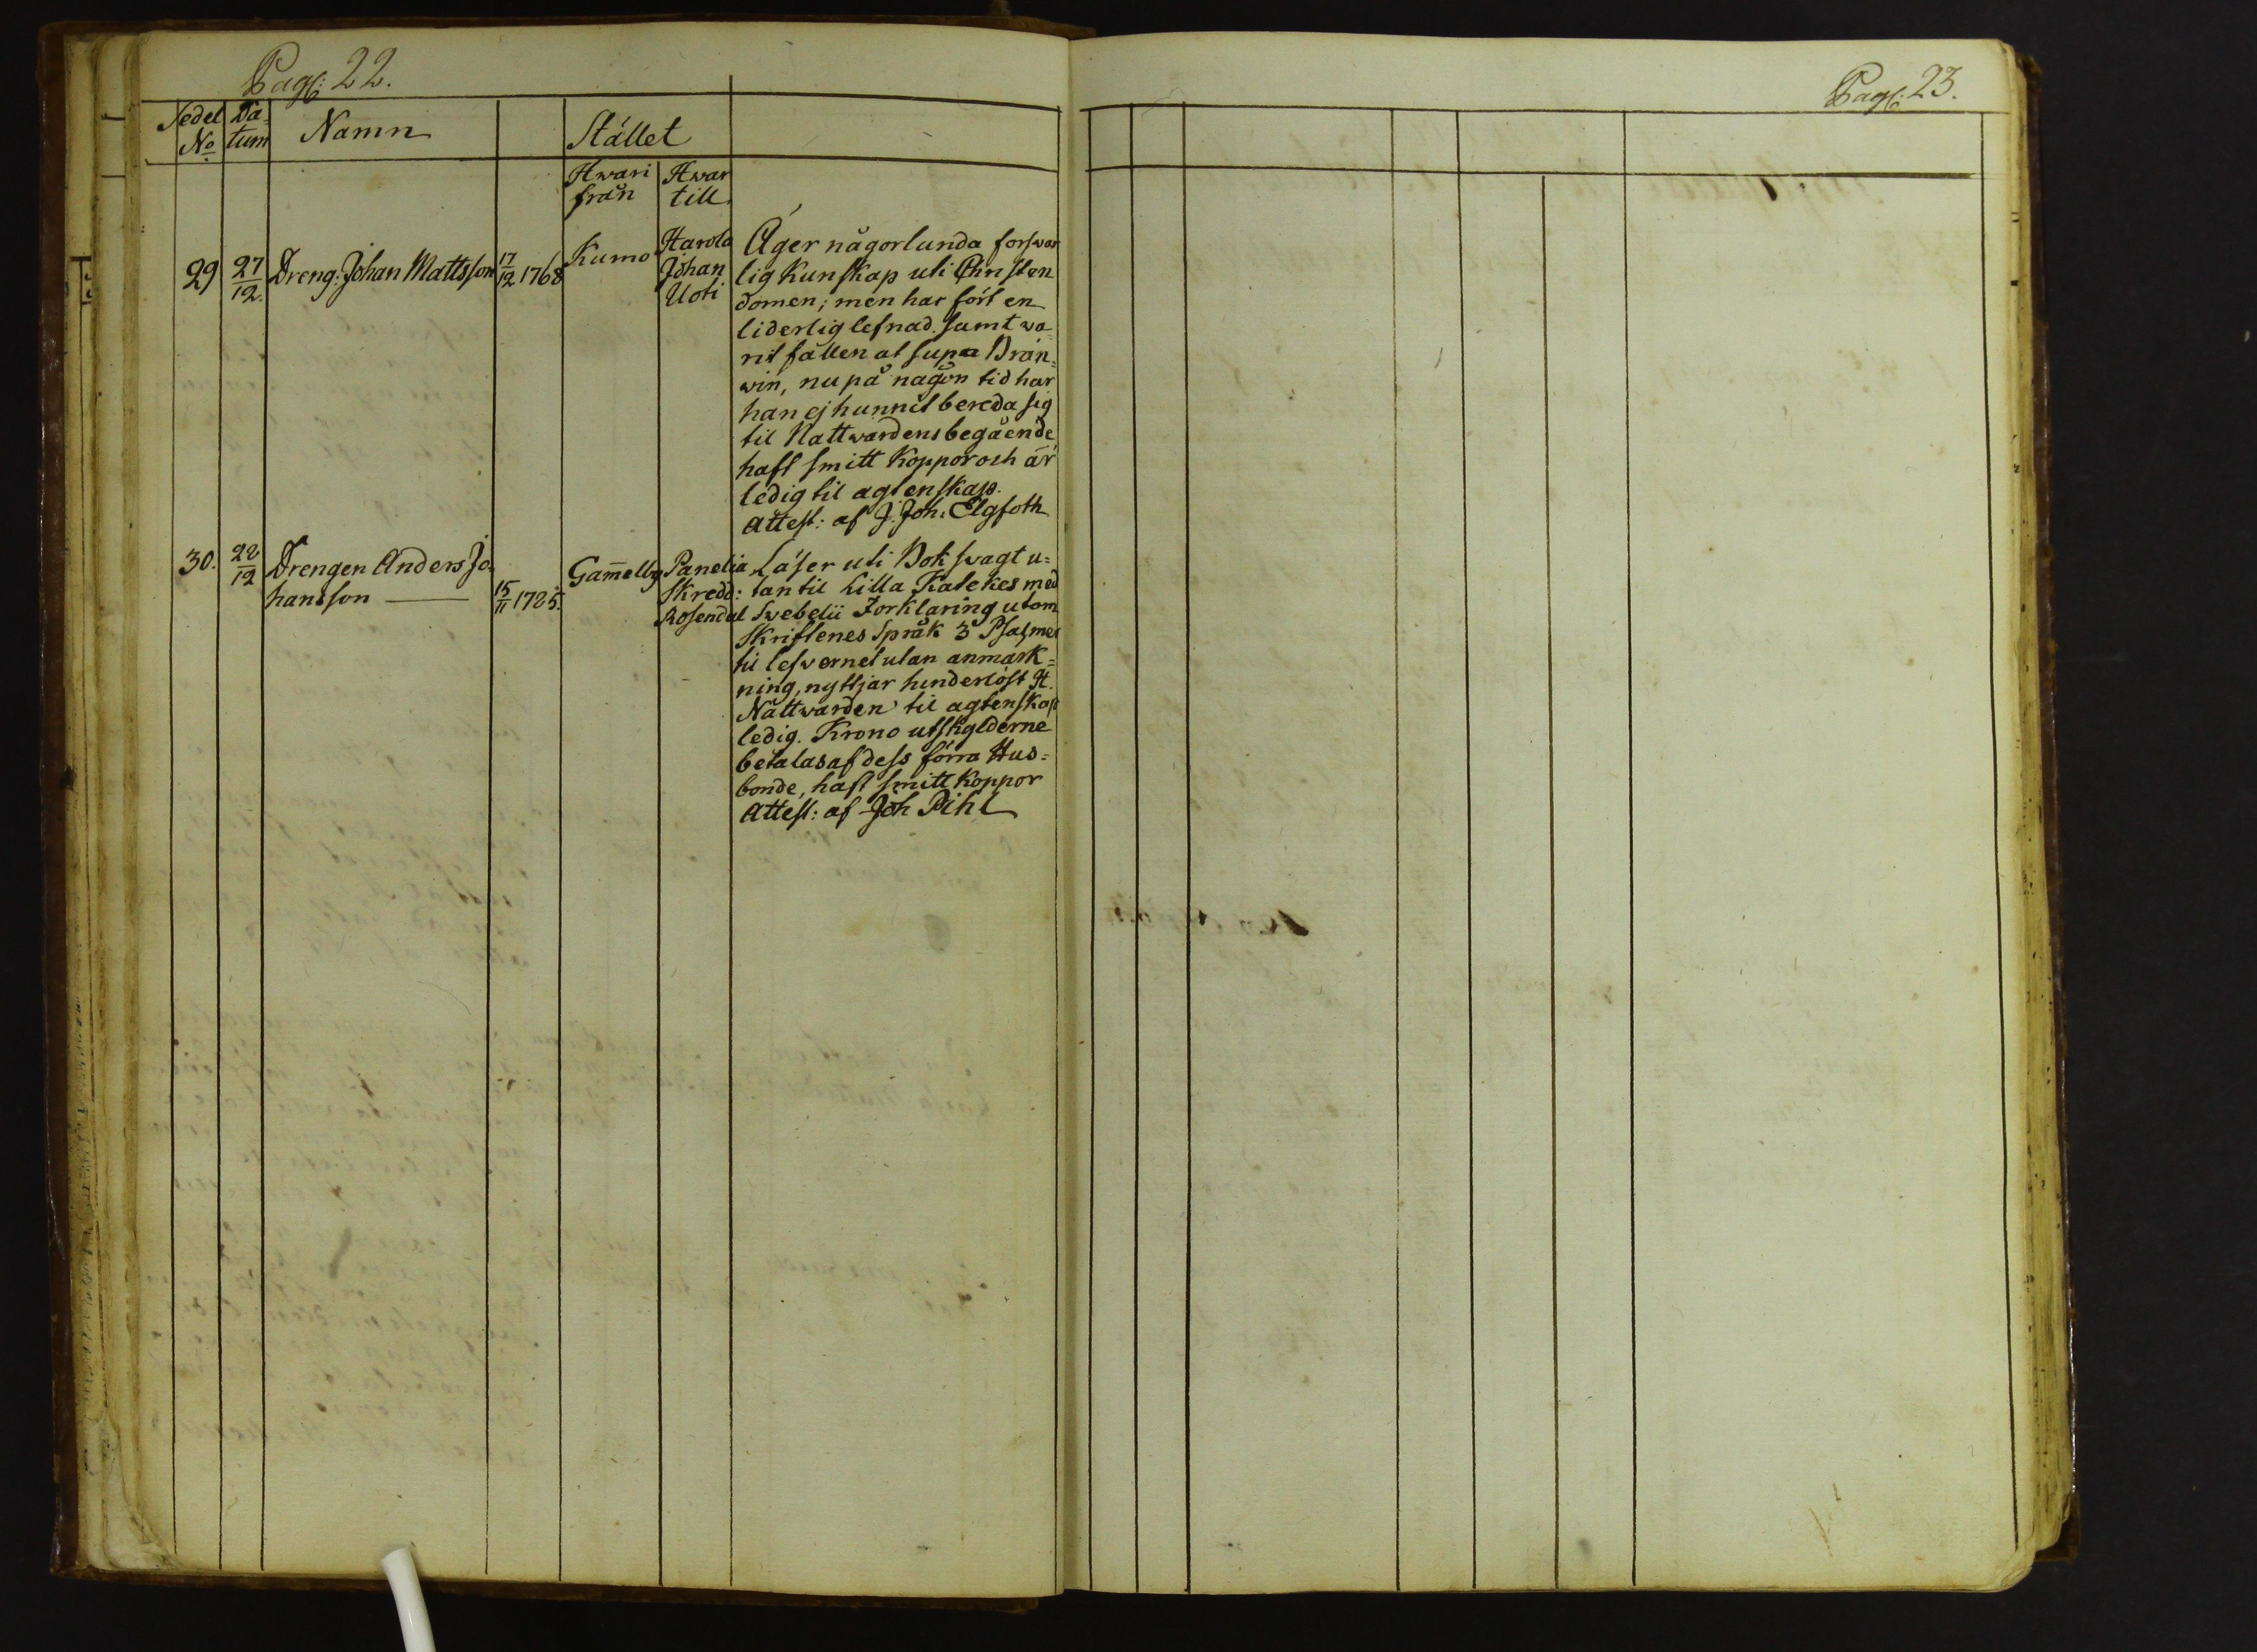 Pag: 22.
Sedel No Da=tum Namn Stället
Hwari från Hwar till
29 27/12. Dreng: Johan Mattsson 17/12 1768 Kumo Harola Johan Uoti
Äger någorlunda forswar
lig Kunskap uti Christen
domen; men har fört en
liderlig lefnad. samt wa
rit fallen at supa Brän=
win, nu på någon tid har
han ej hunnit bereda sig
til Nattwardens begående
haft smitt Koppor och är
ledig til agtenskap.
Attest: af J. Joh: Elgfoth
30. 22/12 Drengen Anders Jo
hansson — 15/11 1785. Gam̄elby Panelia Skredd: Rosendal
Läser uti Bok swagt u=
tan til Lilla Katekes med
Swebelii Forklaring utom
Skriftenes Språk 3 Psalmer
til lefwernet utan anmärk=
ning, nyttjar hinderlöst H.
Nattwarden til agtenskap
ledig. Krono utskylderne
betalas af dess förra Hus=
bonde, haft smitt Koppor
Attest: af Joh Pihl
Pag: 23.